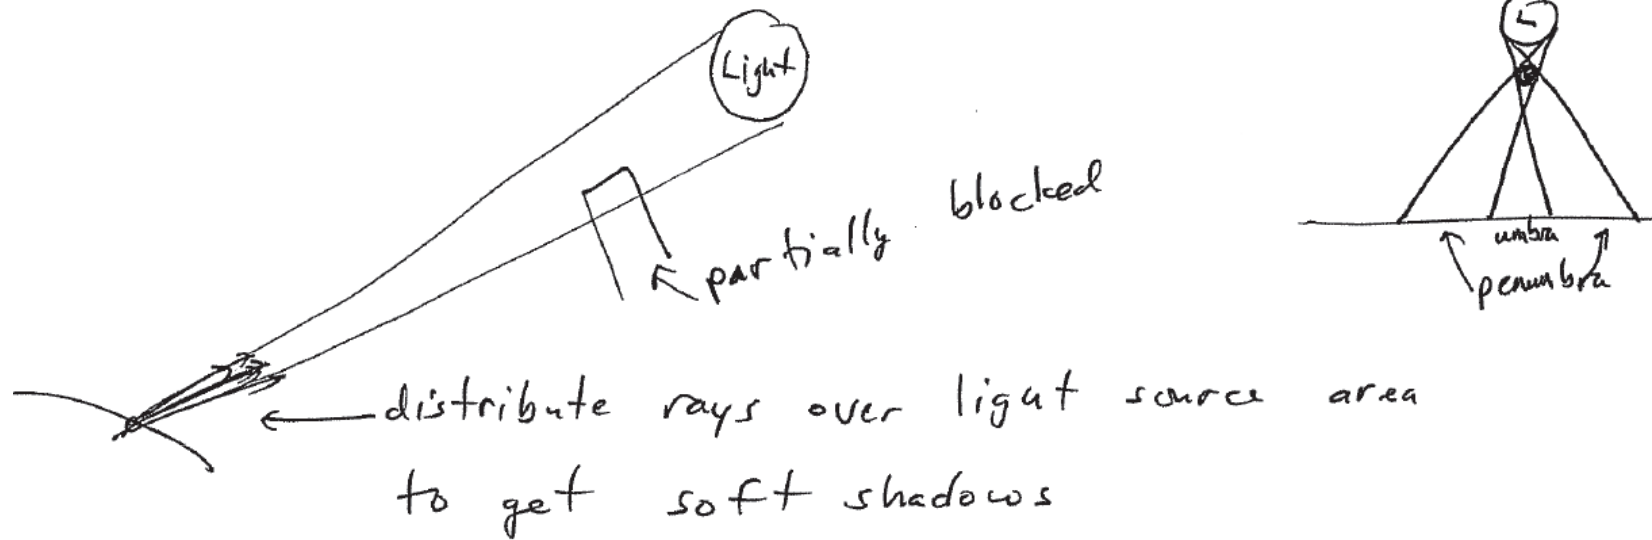 Light
L
partially blocked
umbra
penumbra
distribute rays over light source area
to get soft shadows